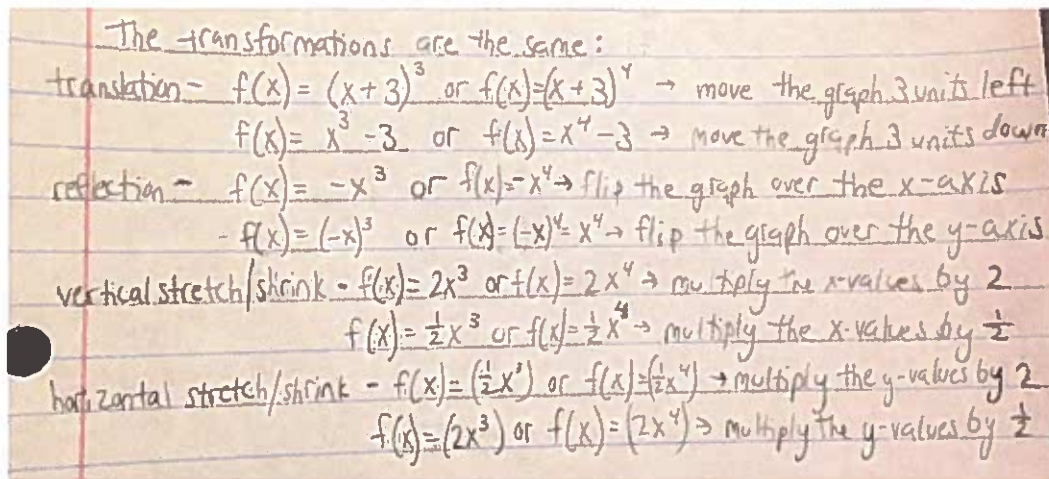 The transformations are the same:
translation - f(x) = (x+3)³ or f(x)=(x+3)⁴ → move the graph 3 units left
f(x) = x³ -3 or f(x) = x⁴ -3 → move the graph 3 units down
reflection - f(x) = -x³ or f(x)=-x⁴→ flip the graph over the x-axis
- f(x) = (-x)³ or f(x)=(-x)⁴= x⁴→ flip the graph over the y-axis
vertical stretch/shrink - f(x) = 2x³ or f(x) = 2x⁴ → multiply the x-values by 2
f(x) = ½x³ or f(x)=½x⁴→ multiply the x-values by ½
horizontal stretch/shrink - f(x)=(½x³) or f(x)=(½x⁴) → multiply the y-values by 2
f(x)=(2x³) or f(x)=(2x⁴) → multiply the y-values by ½